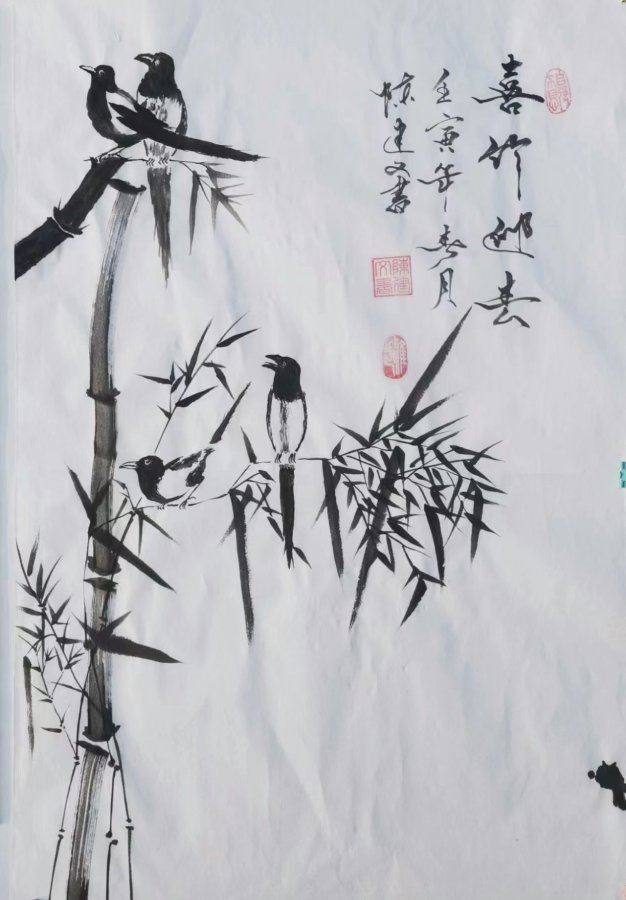 喜竹迎春
壬寅年春月
陈建文書